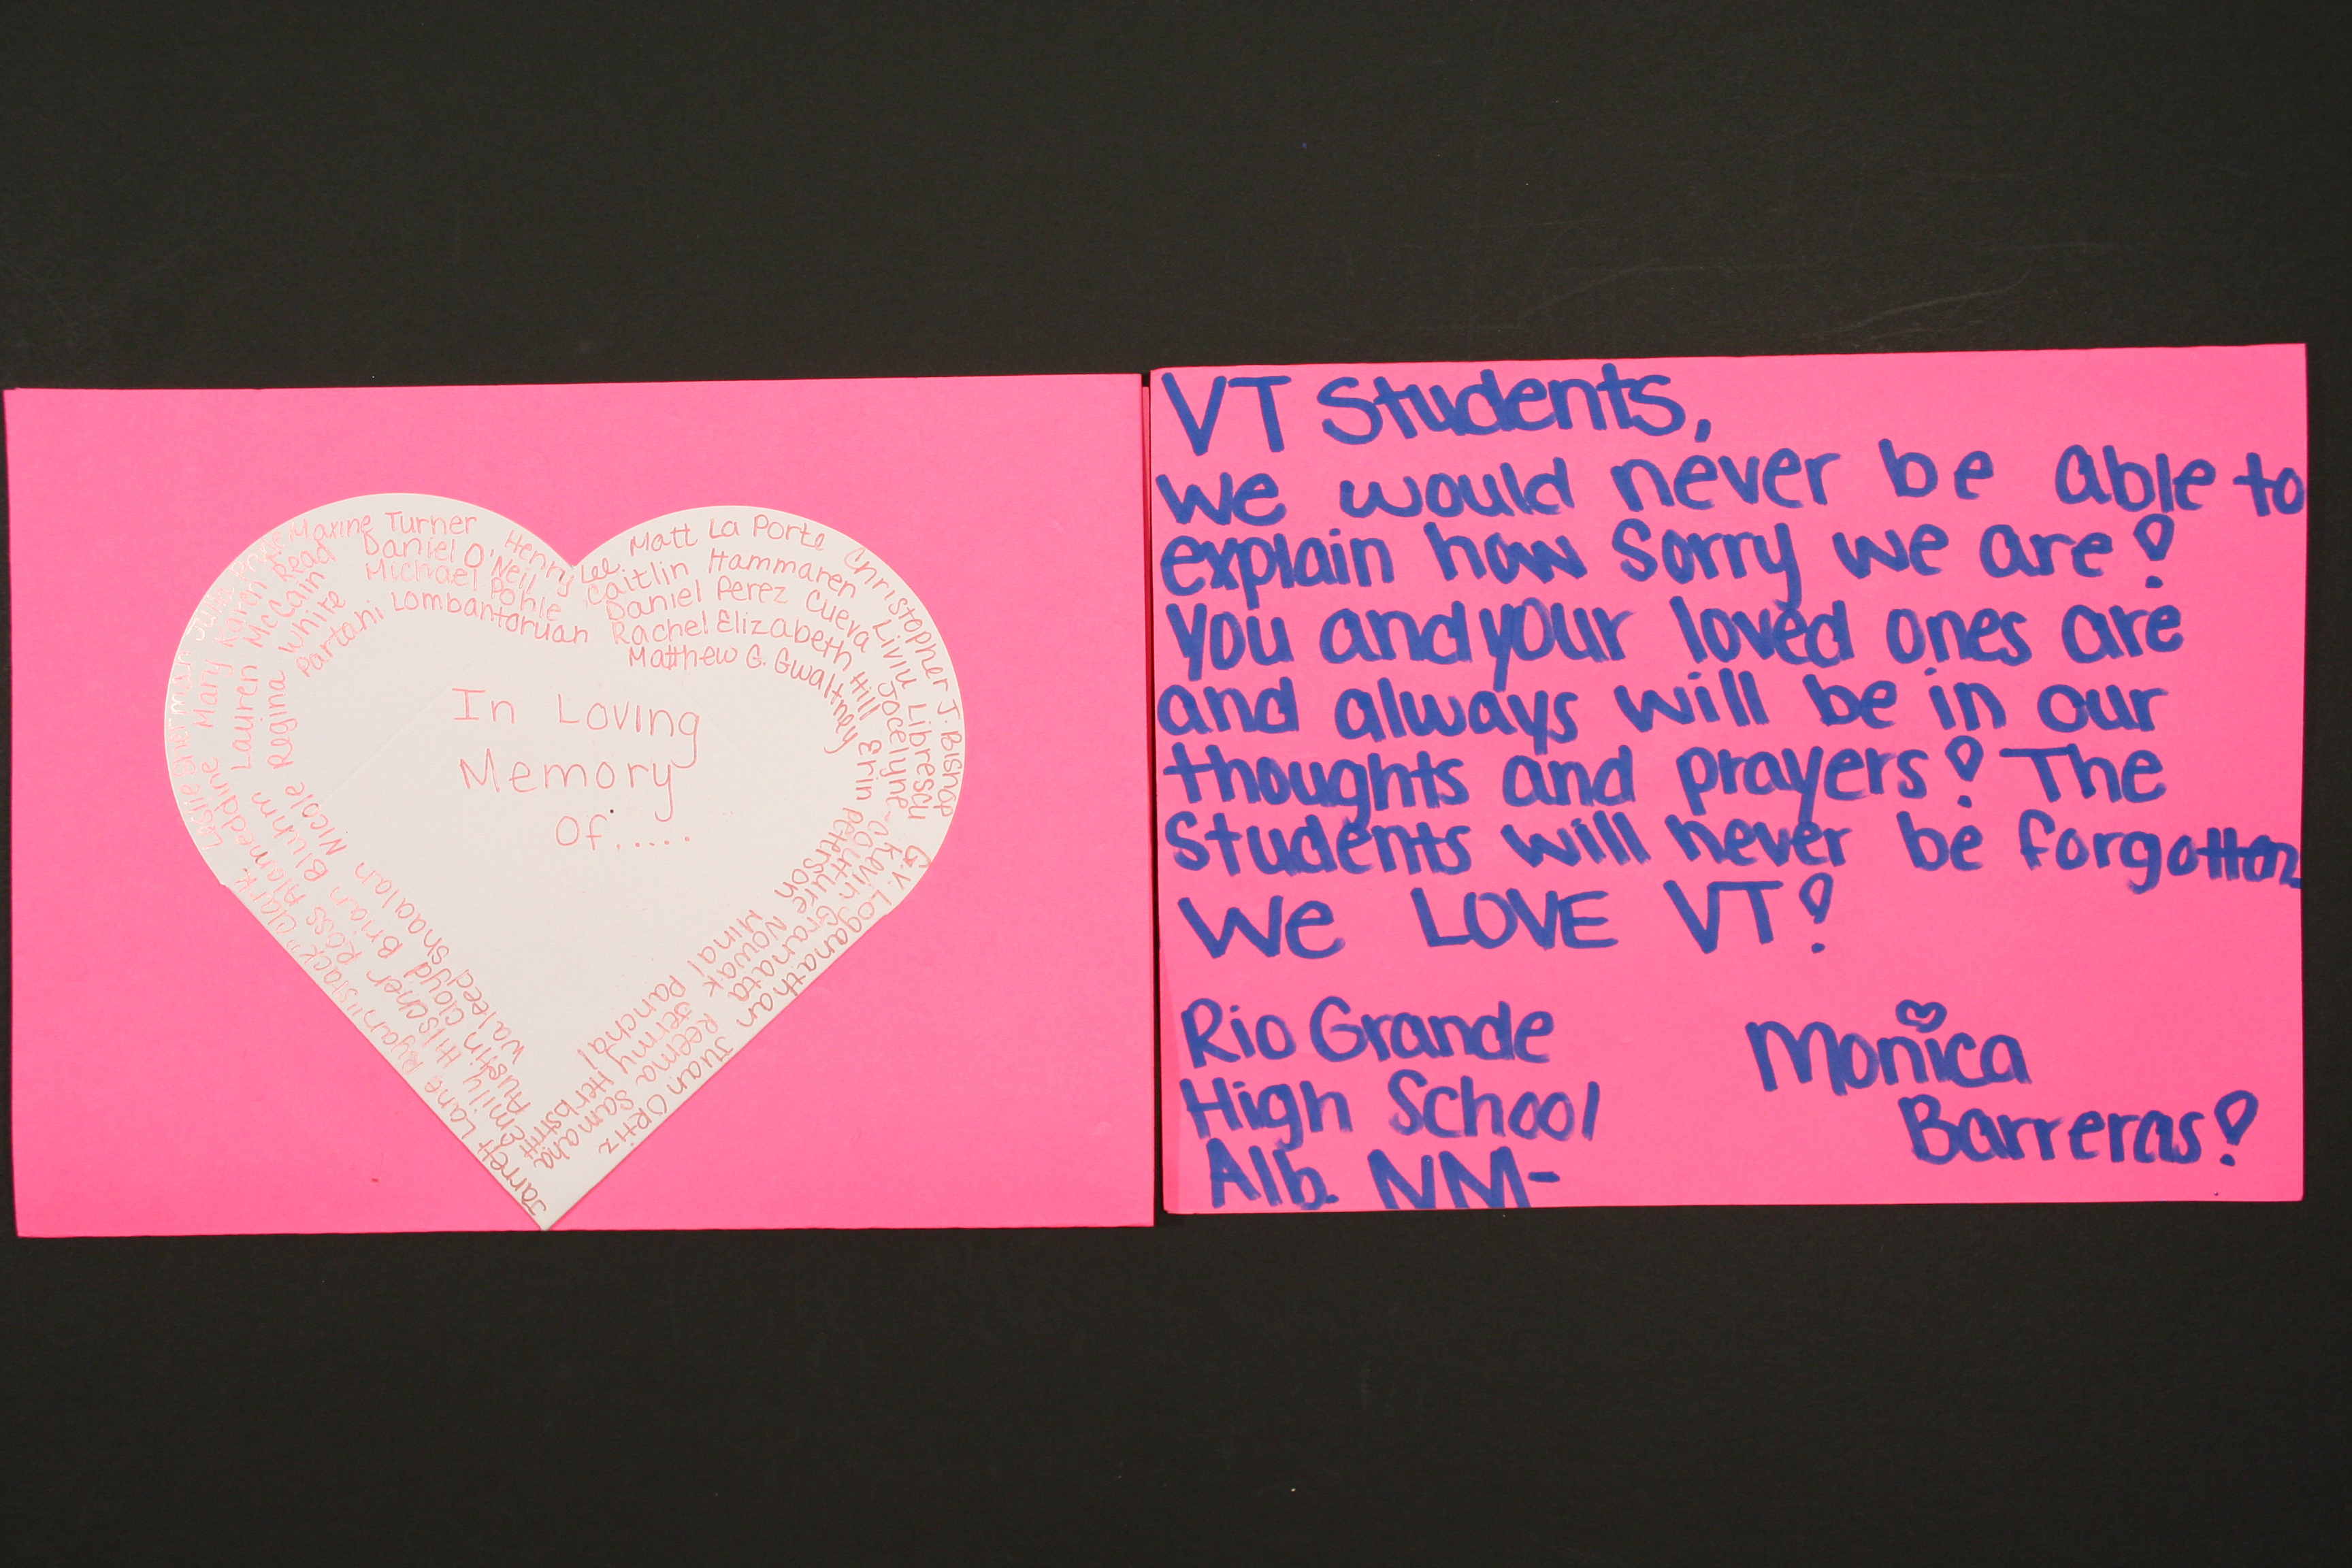 In Loving
Memory
Of.....
Maxine Turner
Henry Lee
Matt La Porte
Christopher J. Bishop
G.V. Loganathan
Juan ORtiz
Jarrett Lane
Ryan "Stack" Clark
Leslie Sherman
Daniel O'Neil
Caitlin Hammaren
Liviu Librescu
Kevin Granata
Reema Samaha
Emily Hilscher
Ross Alameddine
Mary Karen Read
Michael Pohle
Daniel Perez Cueva
Jocelyne-Couture Nowak
Jermy Herbstritt
Austin Cloyd
Brian Bluhm
Lauren McCain
Partahi Lombantoruan
Rachel Elizabeth Hill
Erin Peterson
Minal Panchal
Waleed Shaalan
Nicole Regina White
Matthew G. Gwaltney
VT Students,
We would never be able to
explain how sorry we are!
You and your loved ones are
and always will be in our
thoughts and prayers! The
Students will never be forgotton
We LOVE VT!
Rio Grande
High School
Alb. NM-
Monica
Barreras!